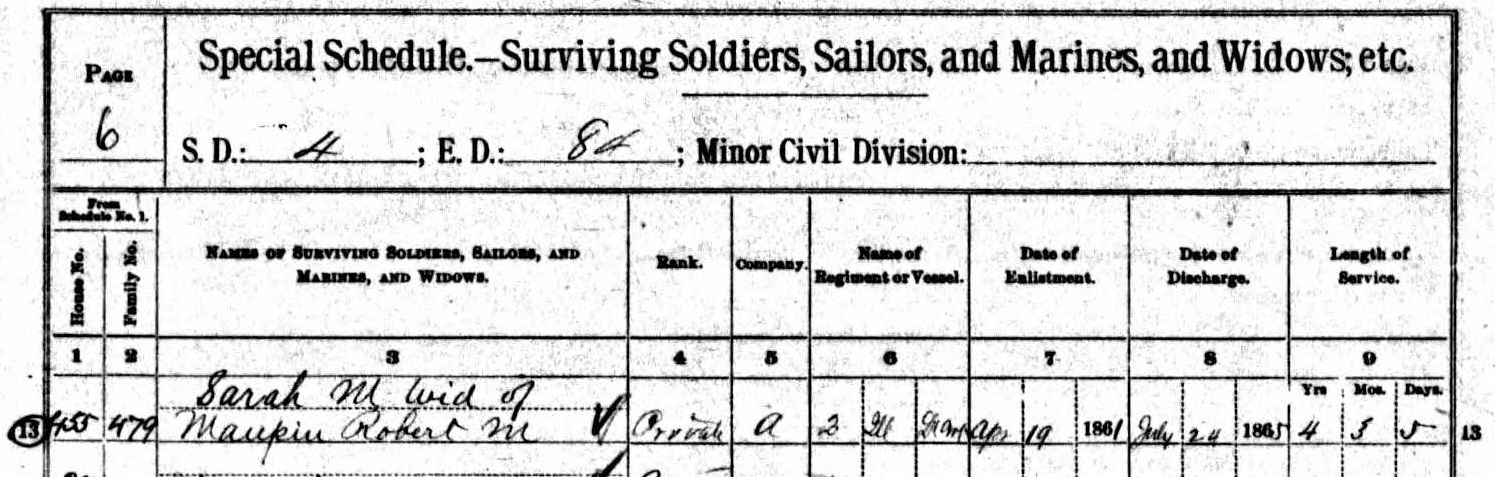 PAGE
6
Special Schedule.—Surviving Soldiers, Sailors, and Marines, and Widows, etc.
S. D.: 4 ; E. D.: 84 ; Minor Civil Division:
From Schedule No. 1.
House No.
Family No.
NAMES OF SURVIVING SOLDIERS, SAILORS, AND MARINES, AND WIDOWS.
Rank.
Company.
Name of Regiment or Vessel.
Date of Enlistment.
Date of Discharge.
Length of Service.
1 2 3 4 5 6 7 8 9
Yrs Mos. Days.
Sarah M Wid of
13 455 479 Maupin Robert M Private A 2 Ill Apr 19 1861 July 24 1865 4 3 5 13